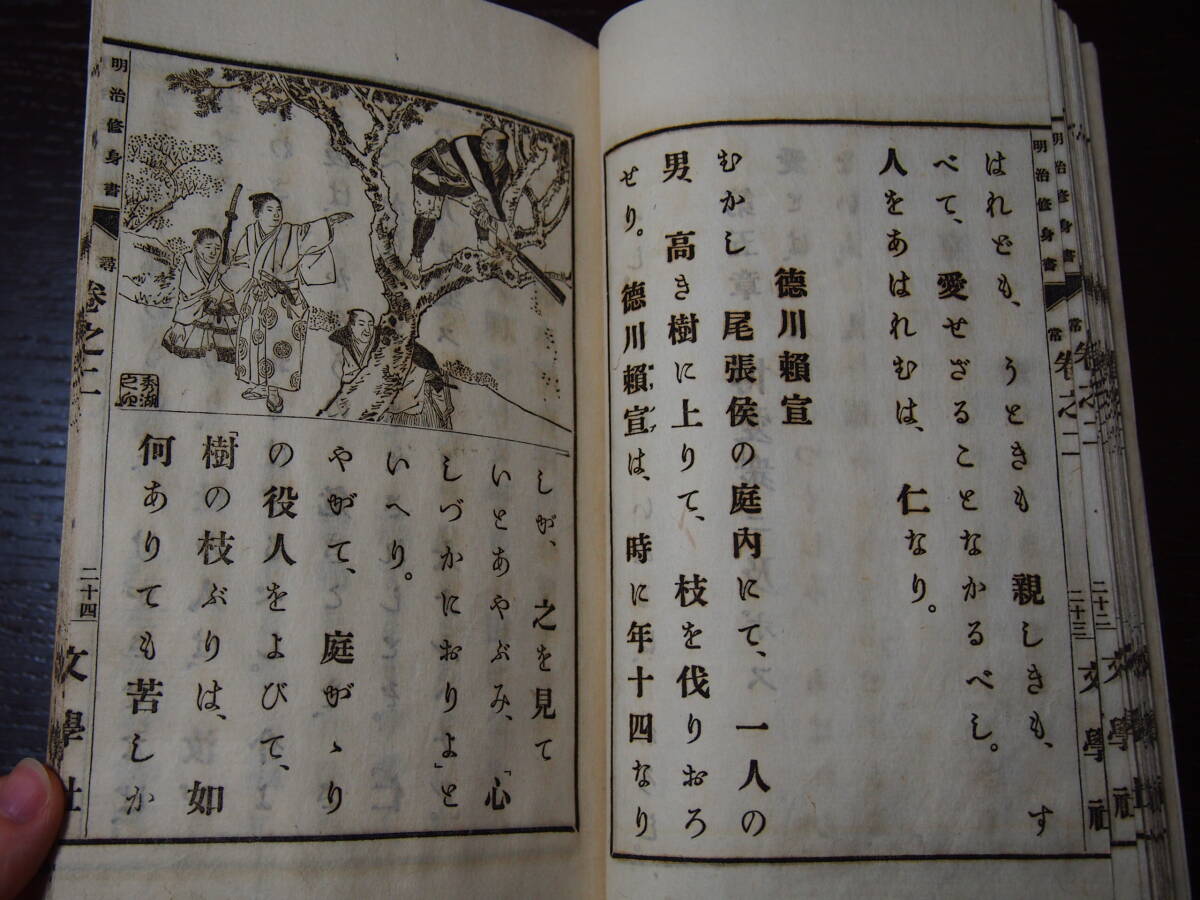 はれども、うときも親しきも、す
べて、愛せざることなかるべし。
人をあはれむは、仁なり。
德川賴宣
むかし尾張侯の庭內にて、一人の
男、高き樹に上りて、枝を伐りおろ
せり。德川賴宣は、時に年十四なり
明治修身書 尋常 卷之二 二十三 文學社
二十二 文學社
明治修身書 尋 卷之二 二十四 文學社
しが、之を見て
いとあやぶみ、「心
しづかにおりよ」と
いへり。
やがて、庭がゝり
の役人をよびて、
「樹の枝ぶりは、如
何ありても苦しか